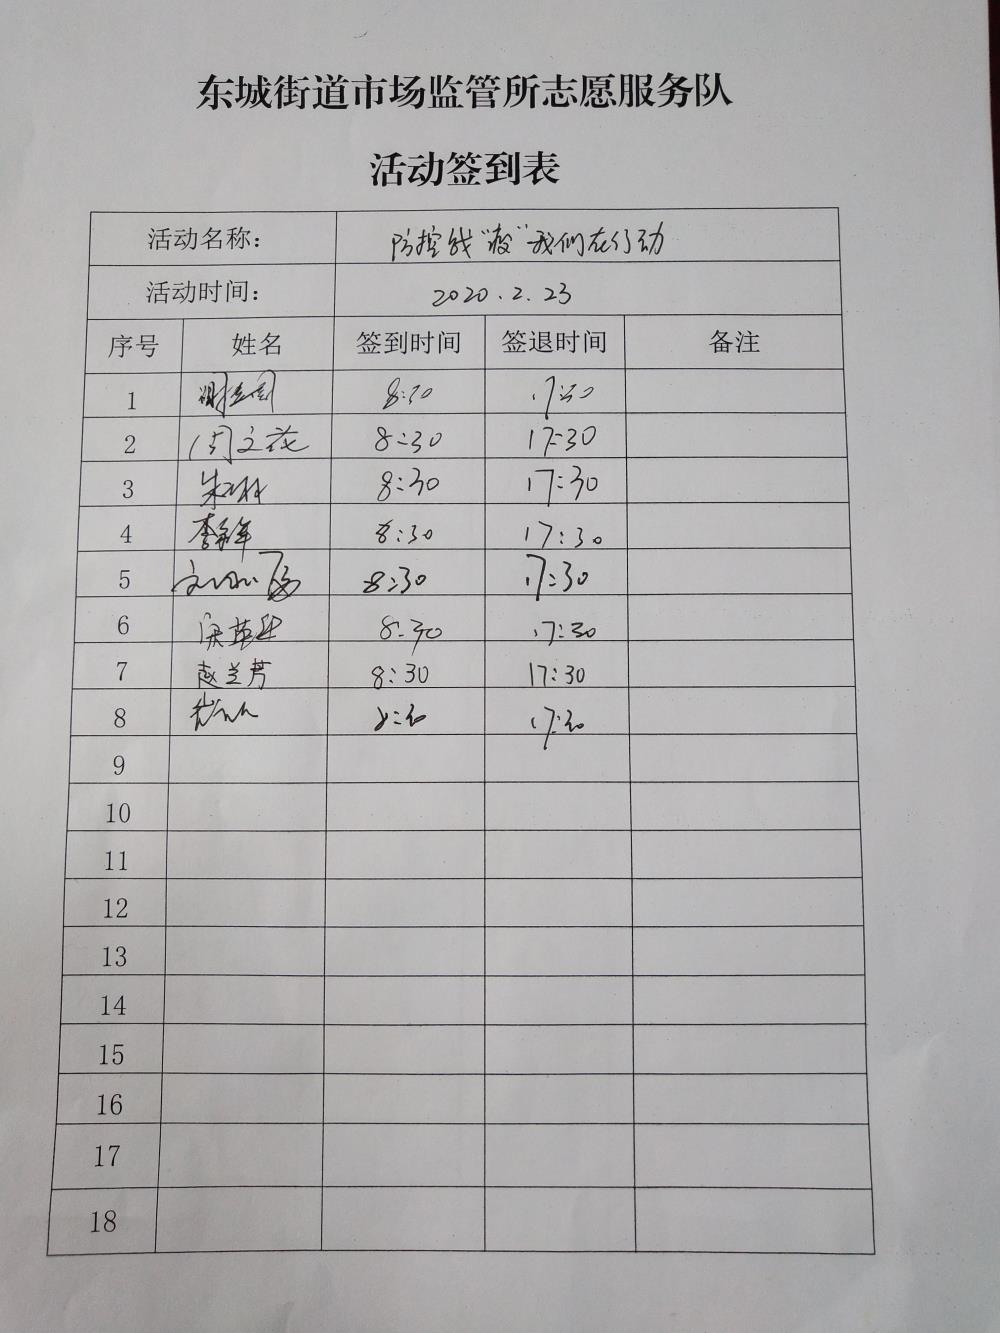 东城街道市场监管所志愿服务队
活动签到表
活动名称： 防控战“疫”我们在行动
活动时间： 2020.2.23
序号 姓名 签到时间 签退时间 备注
1 8:30 17:30
2 周文花 8:30 17:30
3 8:30 17:30
4 8:30 17:30
5 8:30 17:30
6 8:30 17:30
7 赵兰芳 8:30 17:30
8 8:30 17:30
9
10
11
12
13
14
15
16
17
18